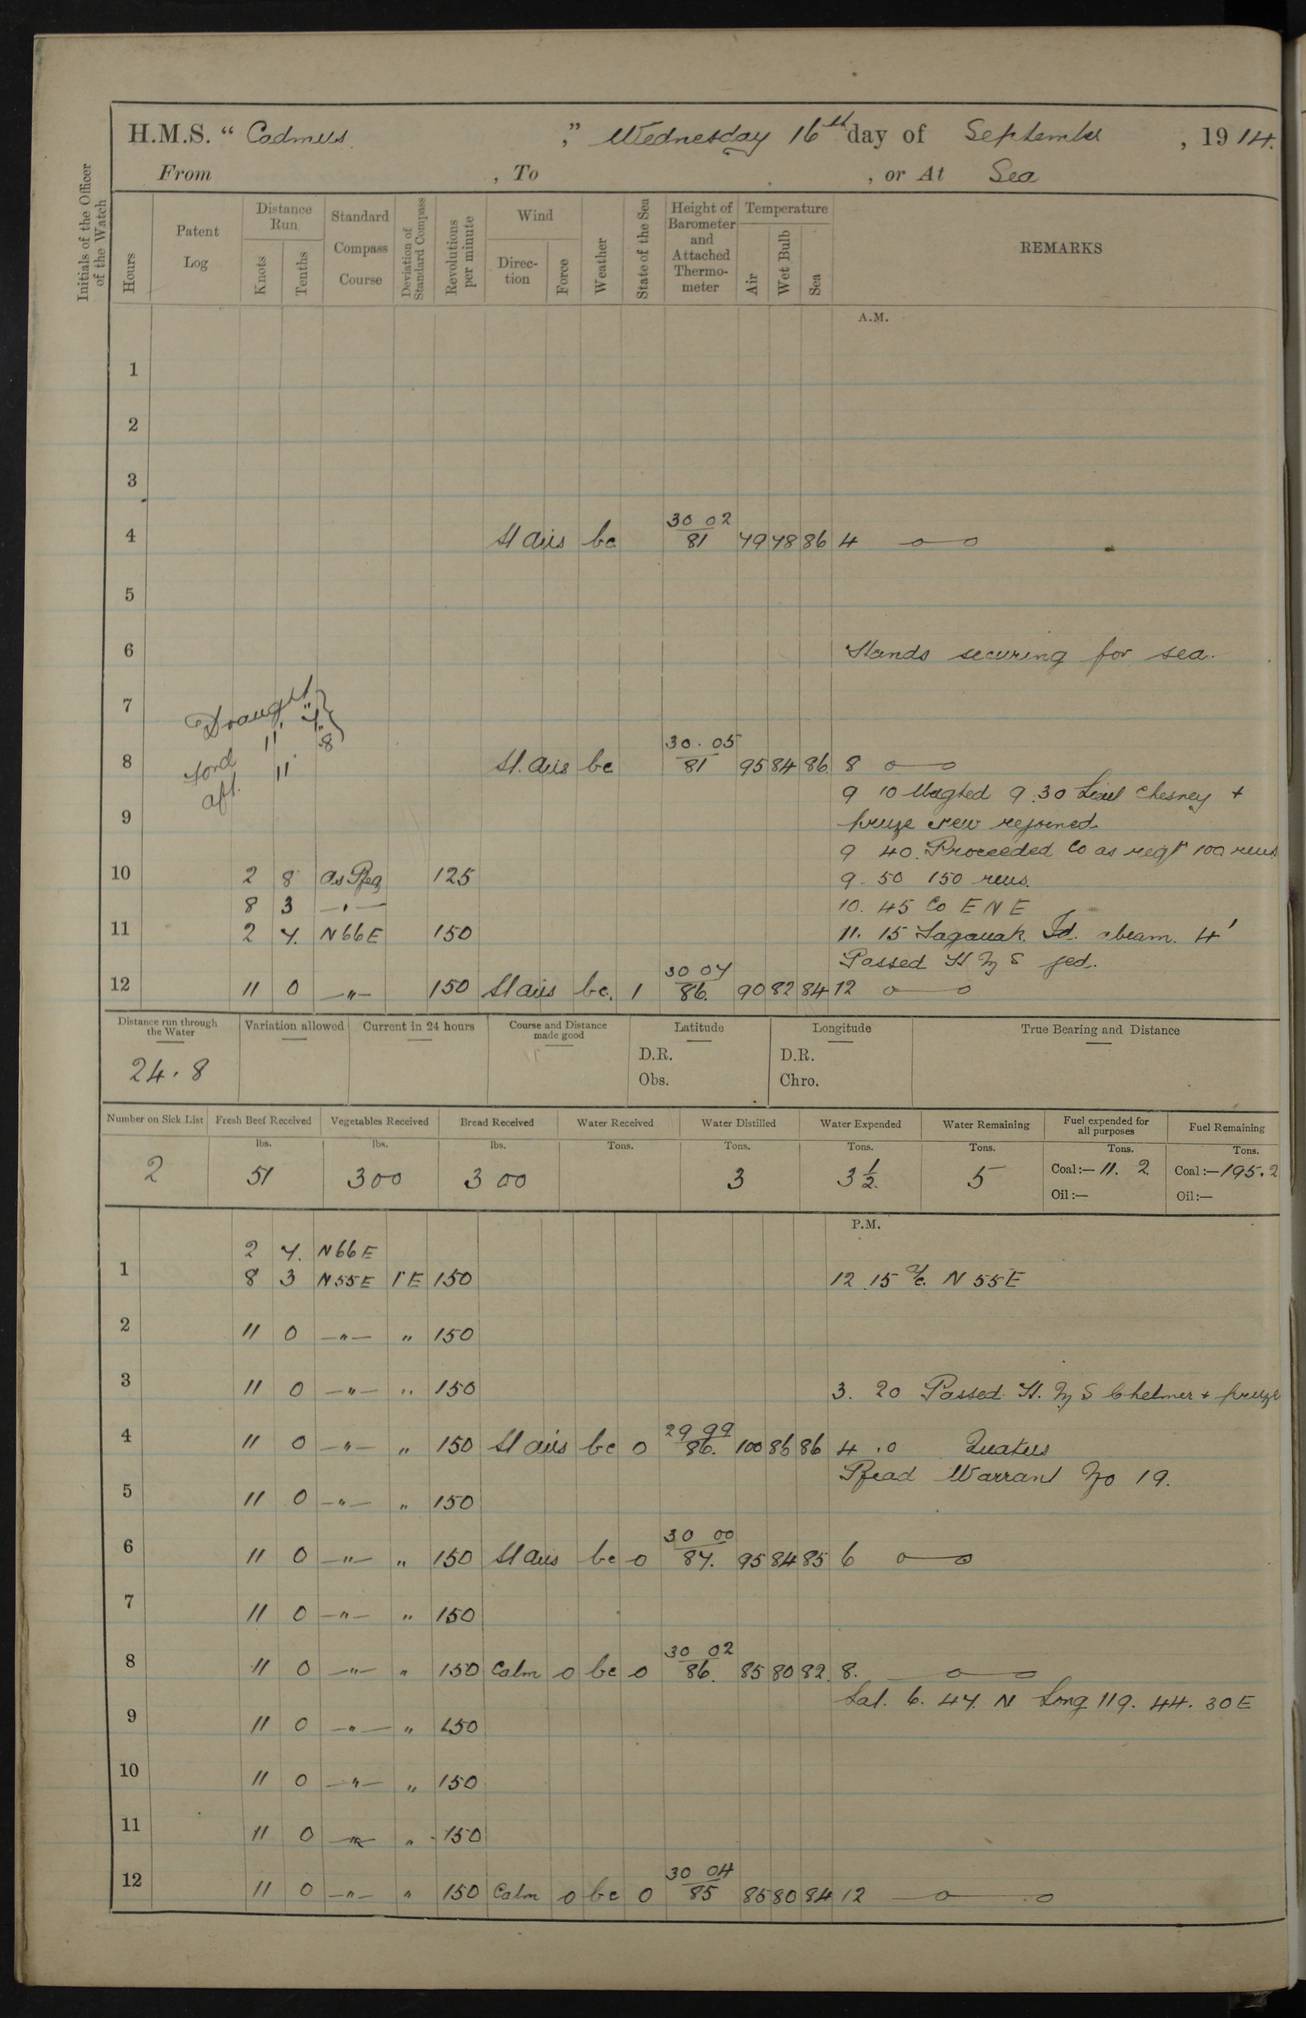 H.M.S. "Cadmus," Wednesday 16th day of September, 1914.
From , To , or At Sea
Initials of the Officer of the Watch
Hours Patent Log Distance Run Knots Tenths Standard Compass Course Deviation of Standard Compass Revolutions per minute Wind Direction Force Weather State of the Sea Height of Barometer and Attached Thermometer Temperature Air Wet Bulb Sea REMARKS
A.M.
1
2
3
4 Lt airs bc 30 02 81 79 78 86 4 —o—o
5
6 Hands securing for sea.
7
Draught
ford 11' 4"
aft. 11' 8"
8 Lt. airs bc 30.05 81 95 84 86 8 o—o
9 10 Weighed 9.30 Lieut Chesney +
9 prize crew rejoined.
9 40. Proceeded Co as reqd 100 revs
10 2 8 As Req 125 9.50 150 revs.
8 3 —"— 10.45 Co E N E
11 2 7. N66E 150 11.15 Id. abeam. 4'
Passed H M S
12 11 0 —"— 150 Lt airs bc. 1 30 07 86. 90 82 84 12 o—o
Distance run through the Water Variation allowed Current in 24 hours Course and Distance made good Latitude Longitude True Bearing and Distance
24.8 D.R. D.R.
Obs. Chro.
Number on Sick List Fresh Beef Received Vegetables Received Bread Received Water Received Water Distilled Water Expended Water Remaining Fuel expended for all purposes Fuel Remaining
lbs. lbs. lbs. Tons. Tons. Tons. Tons. Tons. Tons.
2 51 300 300 3 3½ 5 Coal:—11.2 Coal:—195.2
Oil:— Oil:—
P.M.
2 7. N66E
1 8 3 N55E 1°E 150 12 15 a/c. N 55E
2 11 0 —"— " 150
3 11 0 —"— " 150 3.20 Passed H.M S Chelmer + prize
4 11 0 —"— " 150 Lt airs bc 0 29 99 86. 100 86 86 4.0 Quarters
Read Warrant No 19.
5 11 0 —"— " 150
6 11 0 —"— " 150 Lt airs bc 0 30 00 87. 95 84 85 6 o—o
7 11 0 —"— " 150
8 11 0 —"— " 150 Calm 0 bc 0 30 02 86. 85 80 82 8. —o—o
Lat. 6. 47. N Long 119. 44. 30 E
9 11 0 —"— " 150
10 11 0 —"— " 150
11 11 0 —"— " 150
12 11 0 —"— " 150 Calm 0 bc 0 30 04 85 85 80 84 12 —o—o